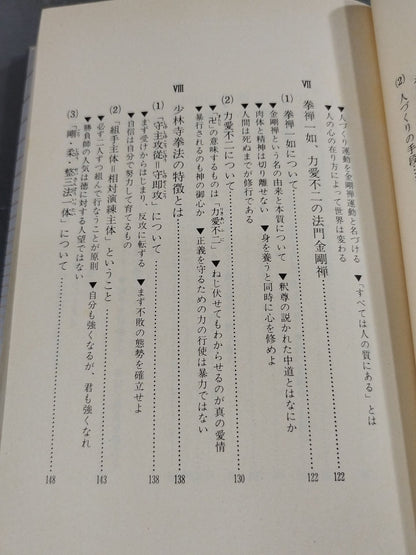 (2) 人づくりの手段
▼人づくり運動を金剛禅運動と名づける ▼「すべては人の質にある」とは
▼人の心の在り方によって世界は変わる
Ⅶ 拳禅一如、力愛不二の法門金剛禅……122
(1) 拳禅一如について……122
▼金剛禅という名の由来と本質について ▼釈尊の説かれた中道とはなにか
▼肉体と精神は切り離せない ▼身を養うと同時に心を修めよ
▼人間は死ぬまでが修行である
(2) 力愛不二について……130
▼卍の意味するものは「力愛不二」 ▼ねじ伏せてもわからせるのが真の愛情
▼暴行されるのも神の御心か ▼正義を守るための力の行使は暴力ではない
Ⅷ 少林寺拳法の特徴とは……138
(1) 「守主攻従＝守即攻」について……138
▼まず受けからはじまり、反攻に転ずる ▼まず不敗の態勢を確立せよ
▼自信は自分で努力して育てるもの
(2) 「組手主体＝相対演練主体」ということ……143
▼必ず二人ずつ組んで行なうことが原則 ▼自分も強くなるが、君も強くなれ
▼勝負師の人気は徳に対する人望ではない
(3) 「剛・柔、整三法一体」について……148